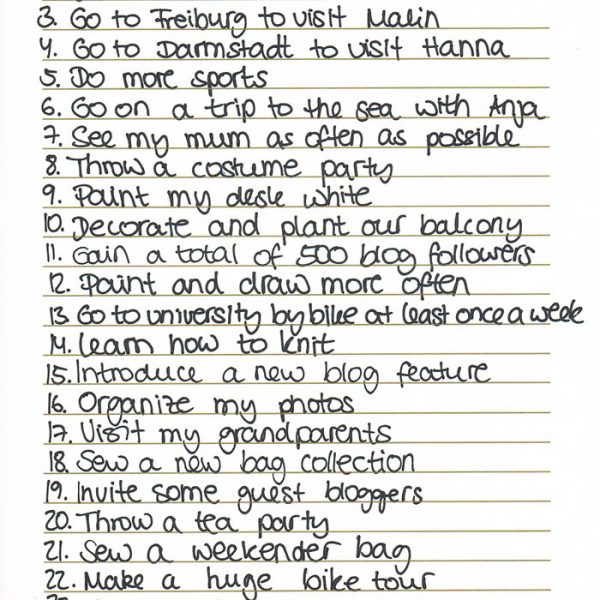 3. Go to Freiburg to visit Malin
4. Go to Darmstadt to visit Hanna
5. Do more sports
6. Go on a trip to the sea with Anja
7. See my mum as often as possible
8. Throw a costume party
9. Paint my desk white
10. Decorate and plant our balcony
11. Gain a total of 500 blog followers
12. Paint and draw more often
13. Go to university by bike at least once a week
14. Learn how to knit
15. Introduce a new blog feature
16. Organize my photos
17. Visit my grandparents
18. Sew a new bag collection
19. Invite some guest bloggers
20. Throw a tea party
21. Sew a weekender bag
22. Make a huge bike tour